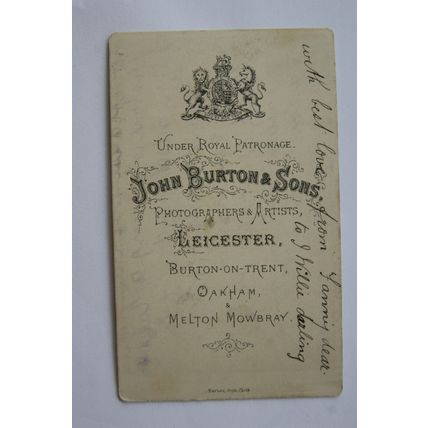 UNDER ROYAL PATRONAGE.
JOHN BURTON & SONS,
PHOTOGRAPHERS & ARTISTS,
LEICESTER,
BURTON-ON-TRENT,
OAKHAM,
&
MELTON MOWBRAY.
with best love from Fanny dear.
to J Willie darling